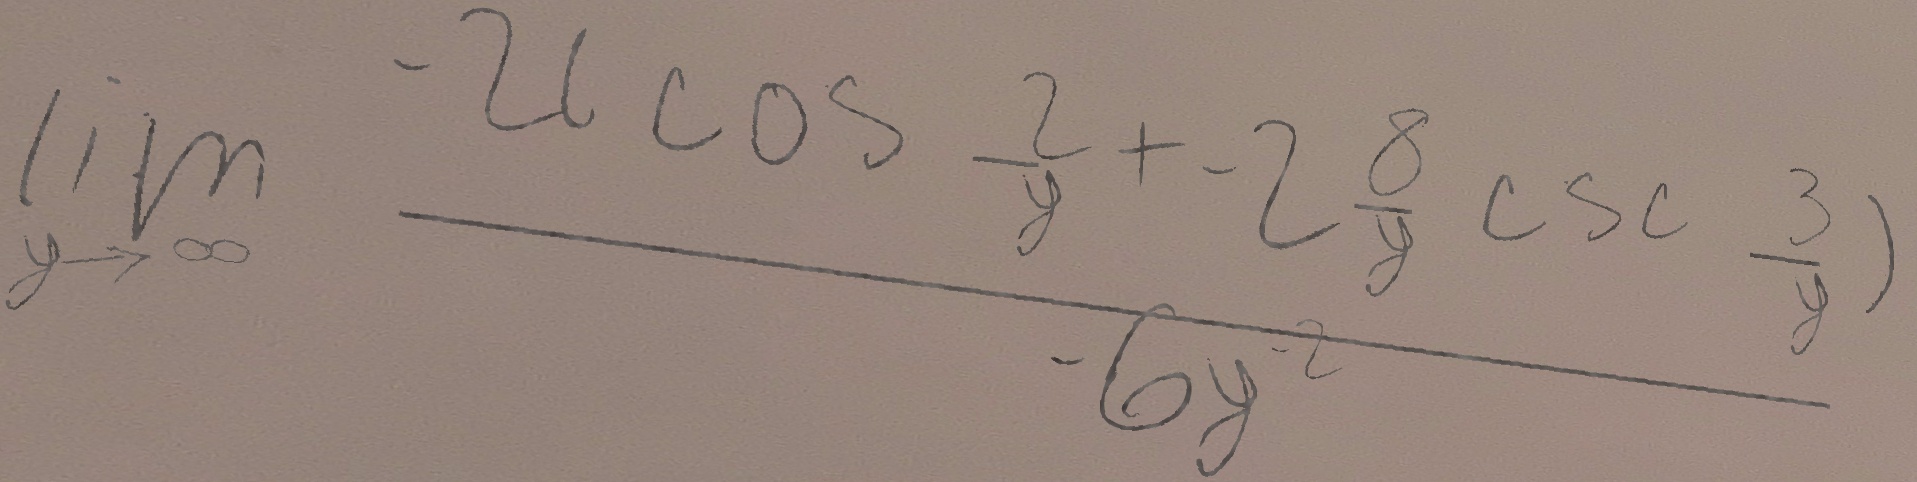 \lim_{y \to \infty} \frac{-21 \cos \frac{2}{y} + -2 \frac{8}{y} \csc \frac{3}{y})}{-6y^{-2}}